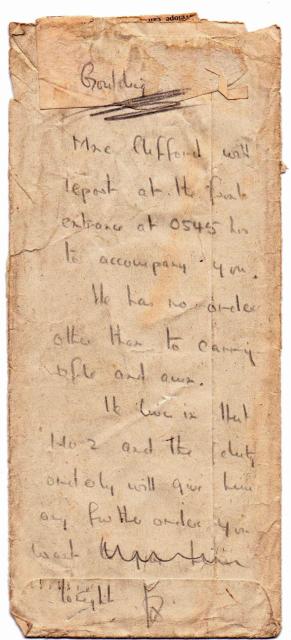 Goulding
Mne Clifford will
report at the front
entrance at 0545 hrs
to accompany you.
He has no orders
other than to carry
rifle and amn.
He lives in Hut
No 2 and the duty
orderly will give him
any further orders you
want
tonight